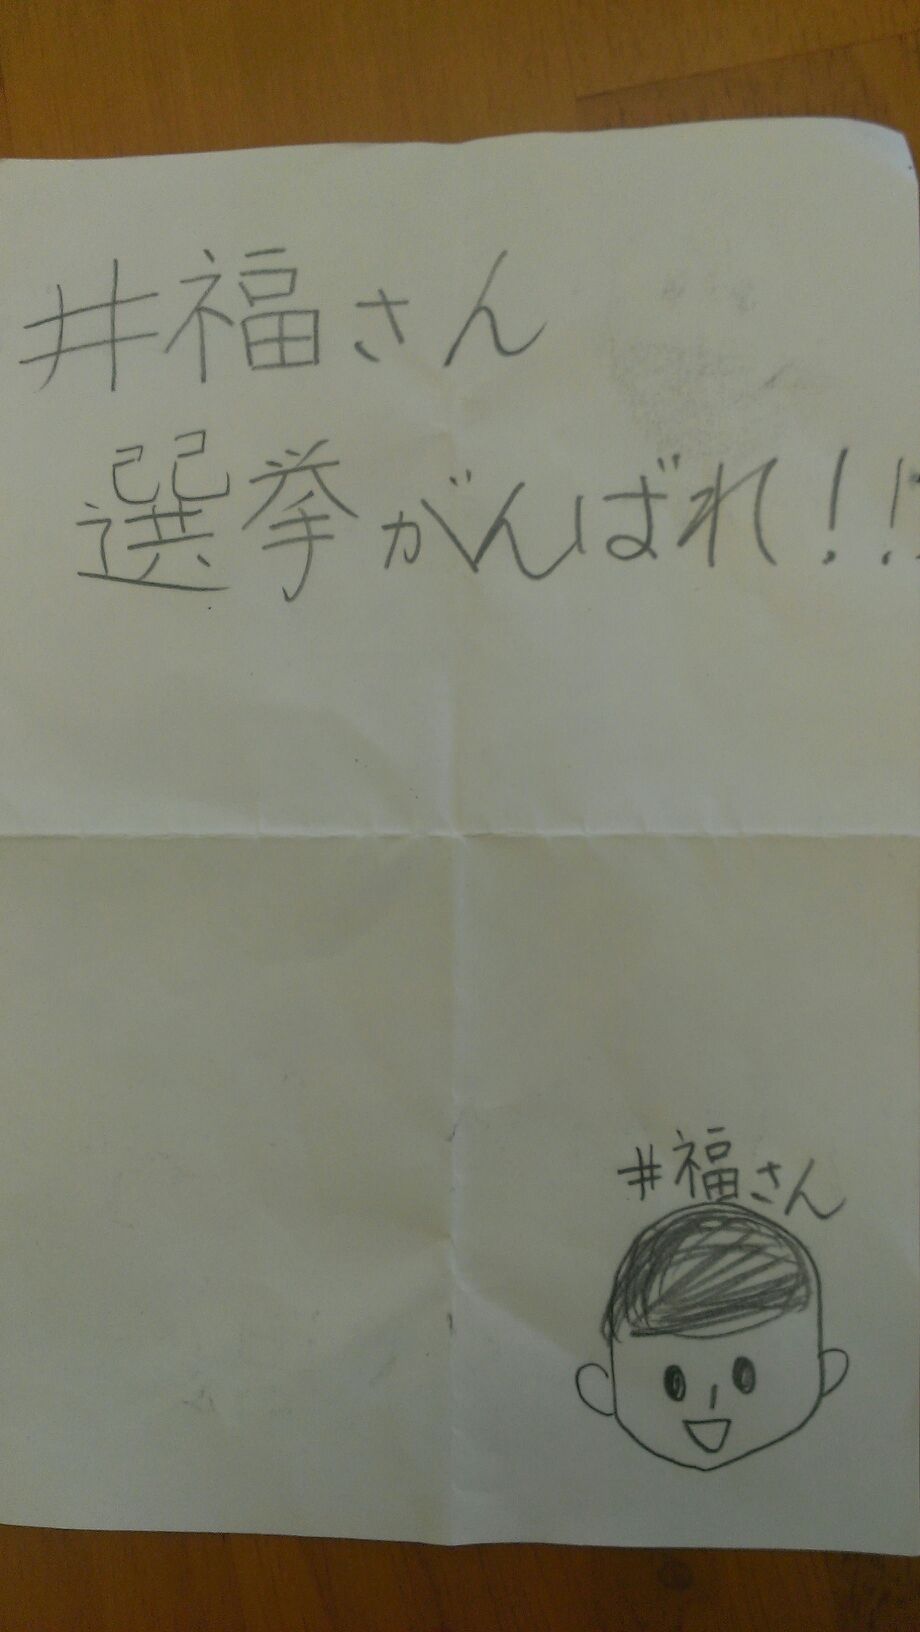 井福さん
選挙がんばれ!!
井福さん